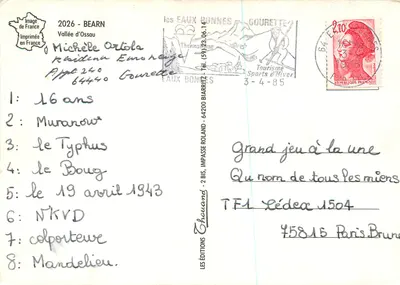 Image de France
Imprimée en France
2026 - BEARN
Vallée d'Ossau
Michèle Ortola
Appt 240
64440 Gourette
1: 16 ans
2: Muranow
3: le Typhus
4: le Boug
5: le 19 avril 1943
6: N'KVD
7: colporteur
8: Mandelieu.
LES ÉDITIONS Thouand - 2 BIS, IMPASSE ROLAND - 64200 BIARRITZ - Tél. (59) 23.06.14
les EAUX BONNES GOURETTE
Thermalisme
Tourisme
Sports d'Hiver
EAUX BONNES
3-4-85
2,10
Grand jeu à la une
Qu nom de tous les miens
TF1 Cédex 1504
75815 Paris Brune